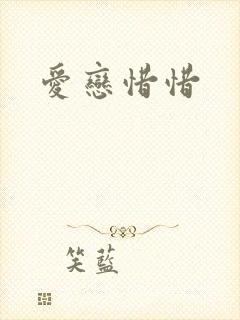 愛戀惜惜
笑藍